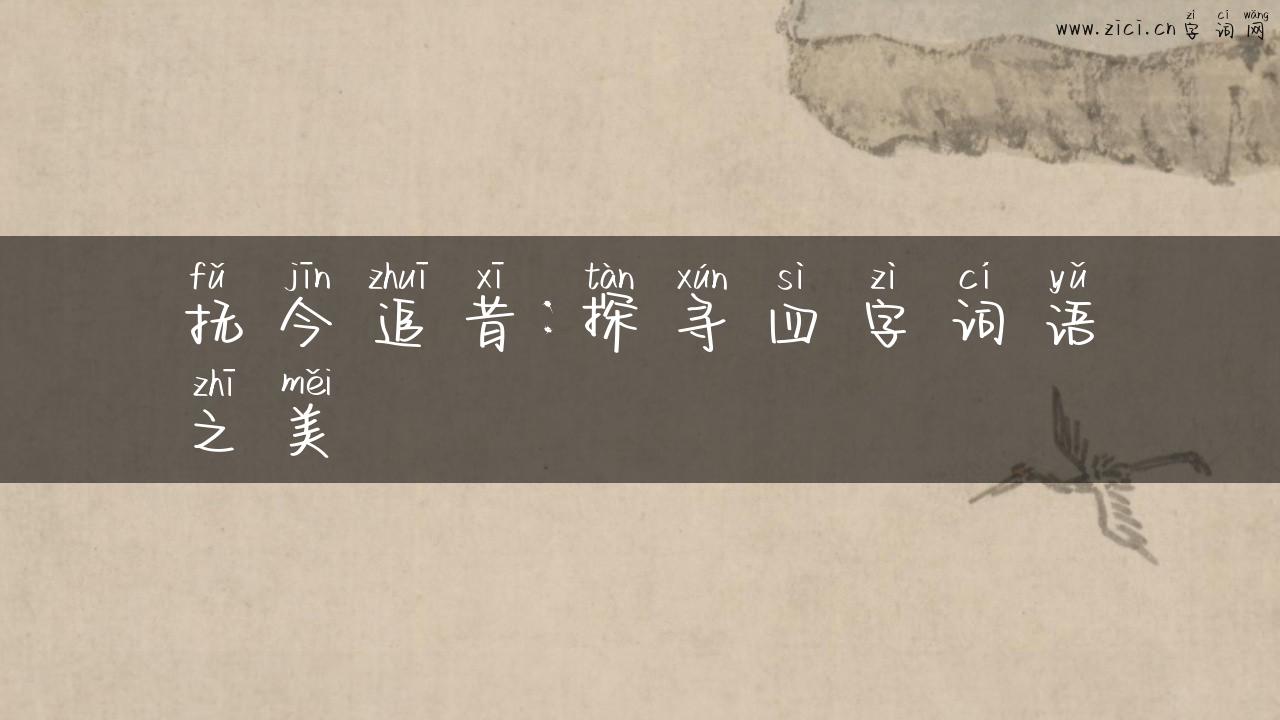 zì cí wǎng
www.zici.cn字词网
fǔ jīn zhuī xī tàn xún sì zì cí yǔ
抚今追昔:探寻四字词语
zhī měi
之美